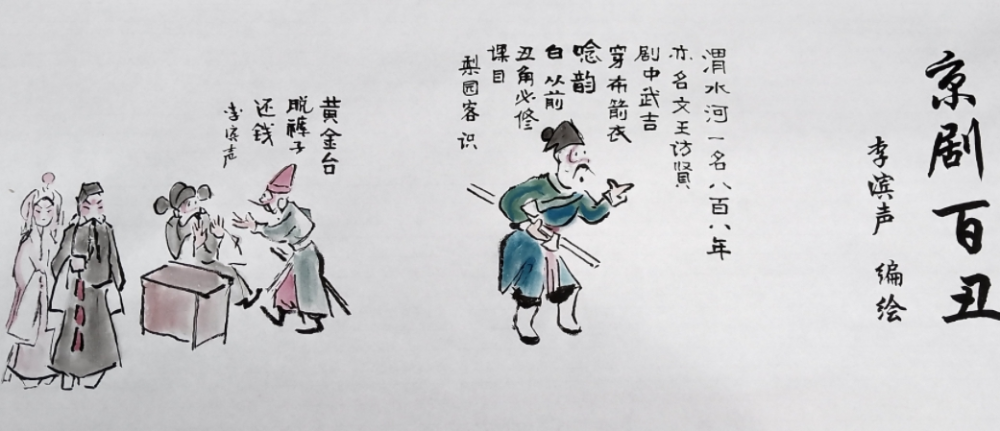 京剧百丑
李滨声 编绘
渭水河一名八百八年
亦名文王访贤
剧中武吉
穿布箭衣
唸韵
白 从前
丑角必修
课目
梨园客 识
黄金台
脱裤子
还钱
李滨声